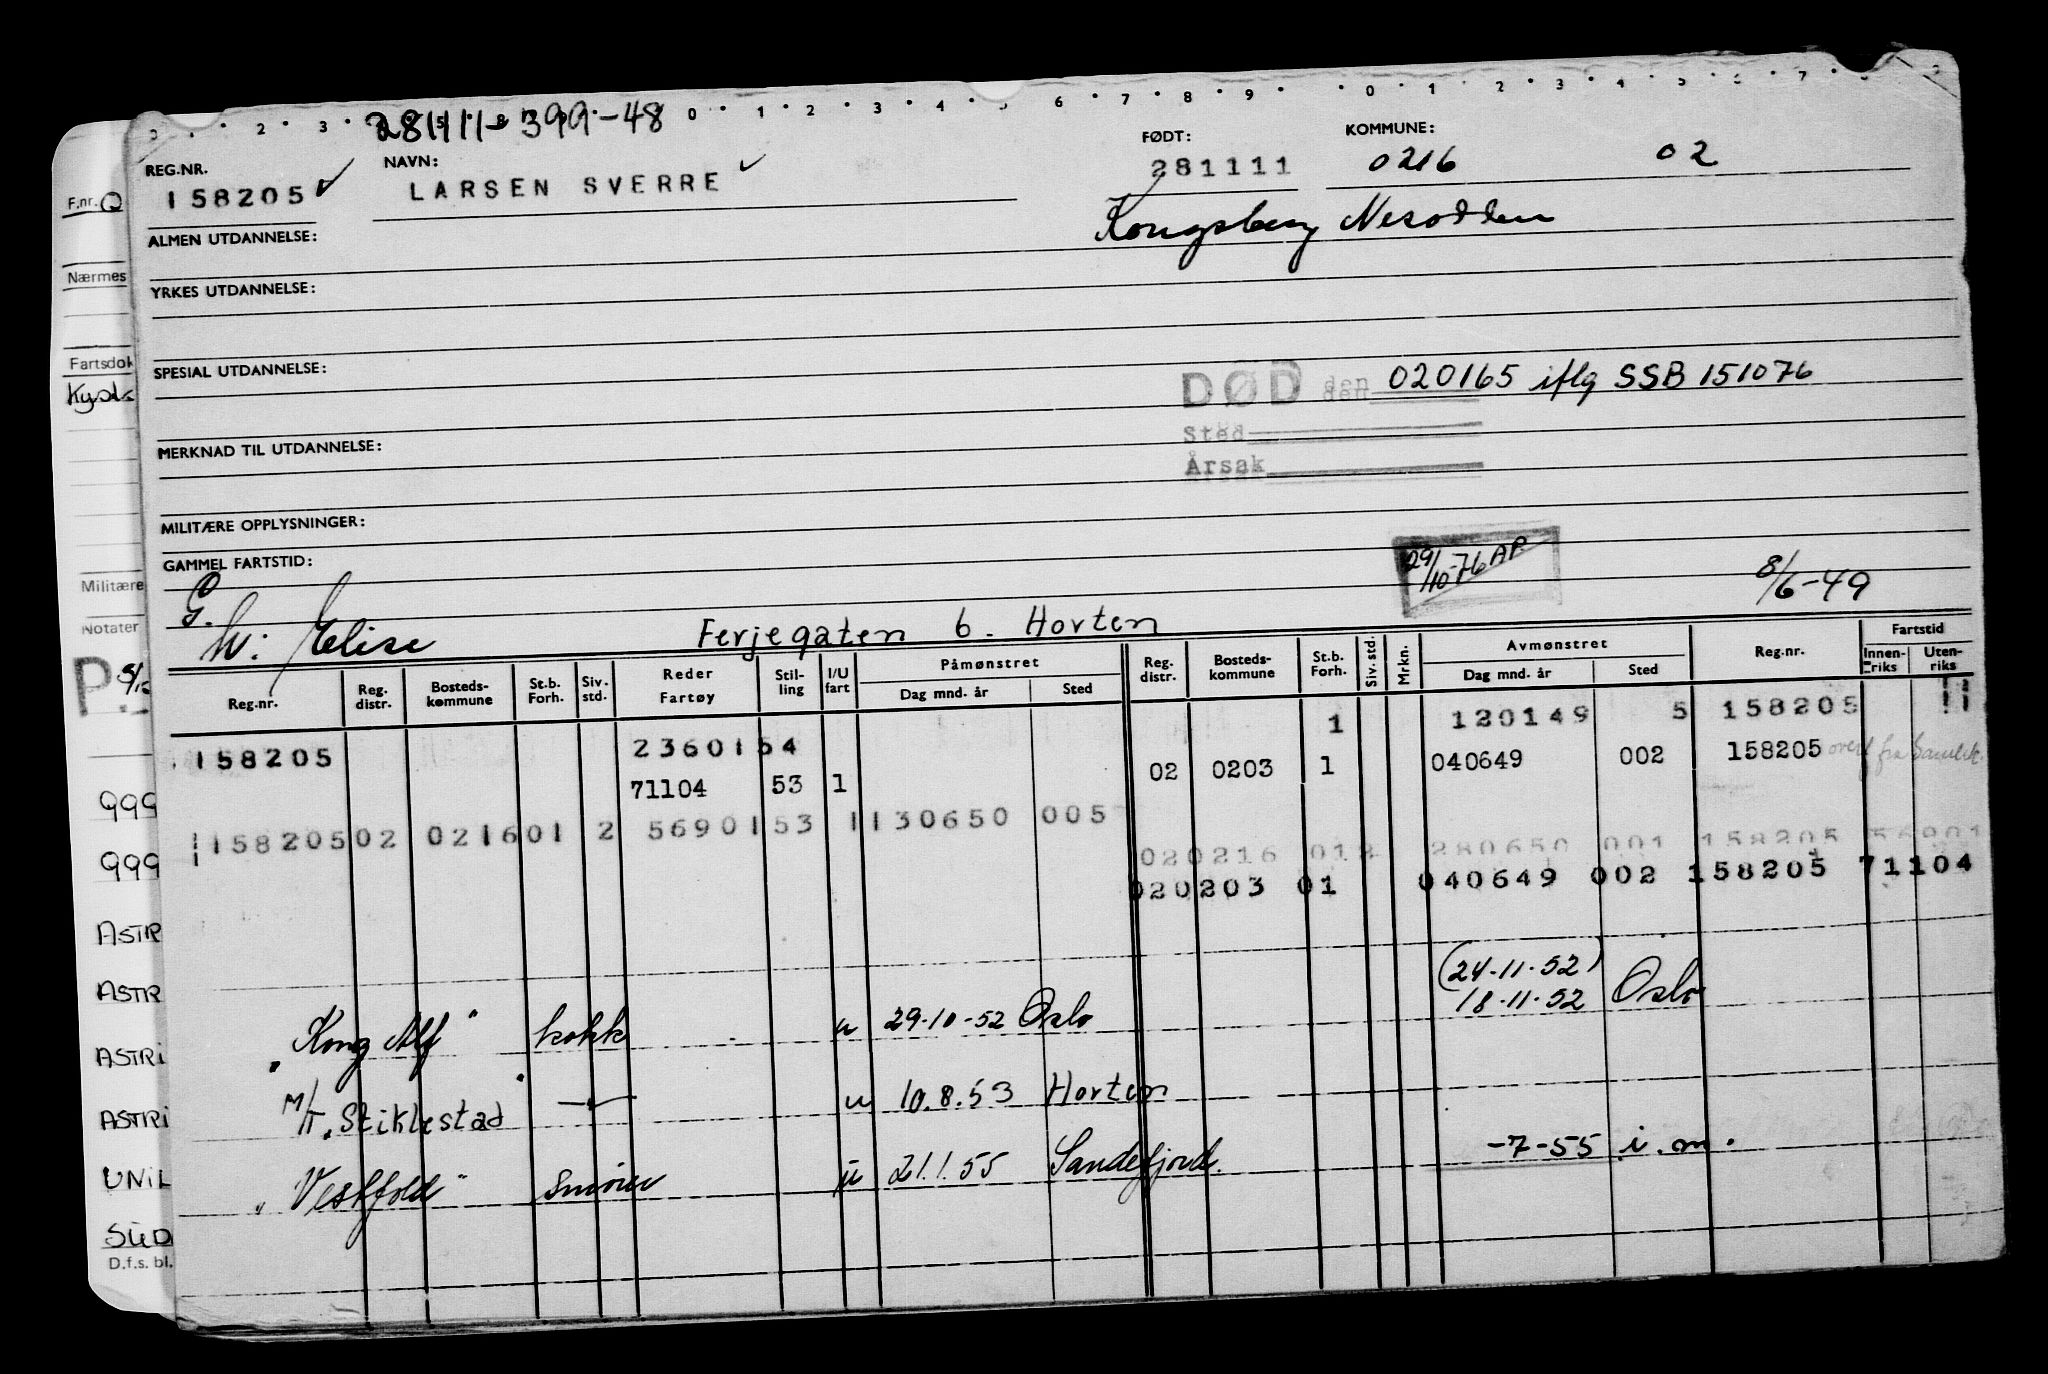 281111-399-48
REG.NR.
158205
NAVN:
LARSEN SVERRE
FØDT:
281111
KOMMUNE:
0216 02
Kongsberg Nesodden
ALMEN UTDANNELSE:
YRKES UTDANNELSE:
SPESIAL UTDANNELSE:
DØD den 020165 iflg SSB 151076
Sted
Årsak
MERKNAD TIL UTDANNELSE:
MILITÆRE OPPLYSNINGER:
GAMMEL FARTSTID:
29/10-76 AP
8/6-49
G.
W: Elise Ferjegaten 6. Horten
Reg.nr. Reg. distr. Bosteds-kommune St.b. Forh. Siv. std. Reder Fartøy Stil-ling I/U fart Påmønstret Dag mnd. år Sted Reg. distr. Bosteds-kommune St.b. Forh. Siv. std. Mrkn. Avmønstret Dag mnd. år Sted Reg.nr. Fartstid Innen-riks Uten-riks
158205 2360154 1 120149 5 158205
71104 53 1 02 0203 1 040649 002 158205 overf fra
158205 02 0216 01 2 56901 53 1 130650 005
020216 012 280650 001 158205 56901
020203 01 040649 002 158205 71104
"Kong Alf" kokk u 29-10-52 Oslo (24-11-52) 18-11-52 Oslo
M/T "Stiklestad" u 10.8.53 Horten
"Vestfold" smører u 21.1.55 Sandefjord. -7-55 i.m.
F.nr. 0
Nærmes
Fartsdok
Kyds
Militære
Notater
P
999
999
ASTR
ASTR
ASTRI
ASTRI
UNIL
SÜD
D.f.s. bl.